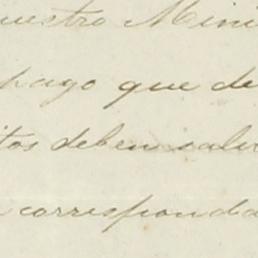 uestro Mini
pago que de
tos deben salir
corresponda